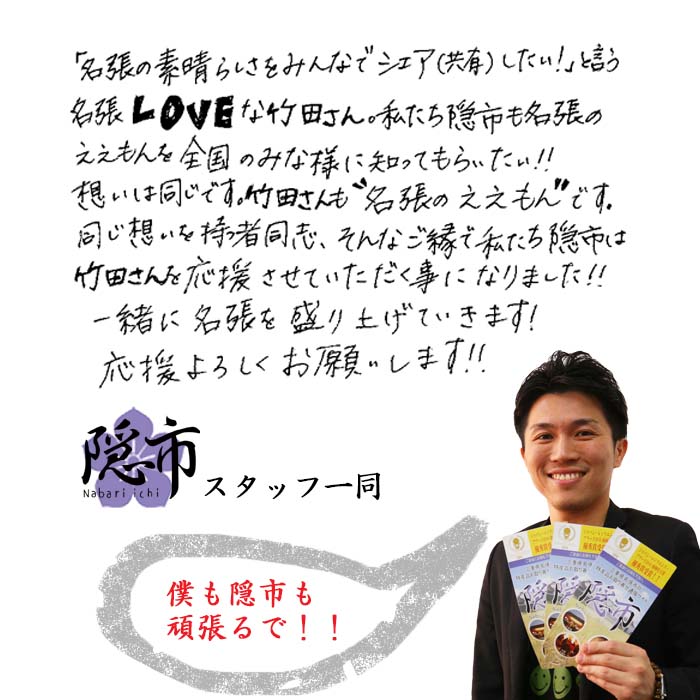 「名張の素晴らしさをみんなでシェア(共有)したい!」と言う
名張LOVEな竹田さん。私たち隠市も名張の
ええもんを全国のみな様に知ってもらいたい!!
想いは同じです。竹田さんも“名張のええもん”です。
同じ想いを持つ者同志、そんなご縁で私たち隠市は
竹田さんを応援させていただく事になりました!!
一緒に名張を盛り上げていきます!
応援よろしくお願いします!!
隠市
Nabari ichi
スタッフ一同
僕も隠市も
頑張るで!!
隠市